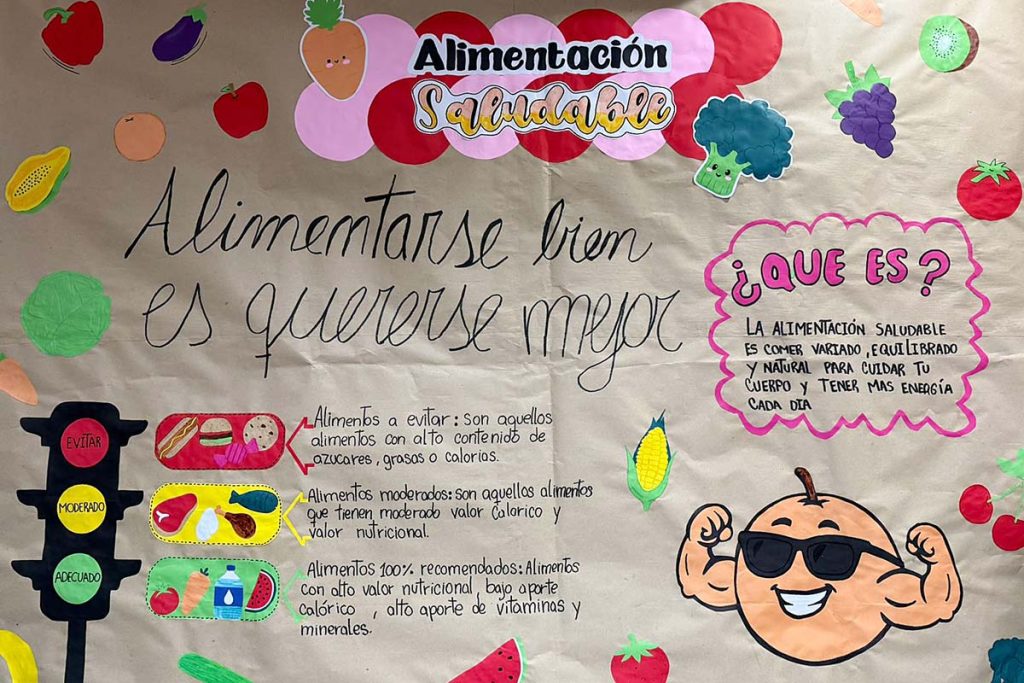 Alimentación
Saludable
Alimentarse bien
es quererse mejor
¿QUE ES?
LA ALIMENTACIÓN SALUDABLE
ES COMER VARIADO, EQUILIBRADO
Y NATURAL PARA CUIDAR TU
CUERPO Y TENER MAS ENERGÍA
CADA DIA
EVITAR
Alimentos a evitar: son aquellos
alimentos con alto contenido de
azucares, grasas o calorias.
MODERADO
Alimentos moderados: son aquellos alimentos
que tienen moderado valor calorico y
valor nutricional.
ADECUADO
Alimentos 100% recomendados: Alimentos
con alto valor nutricional, bajo aporte
calórico , alto aporte de vitaminas y
minerales.